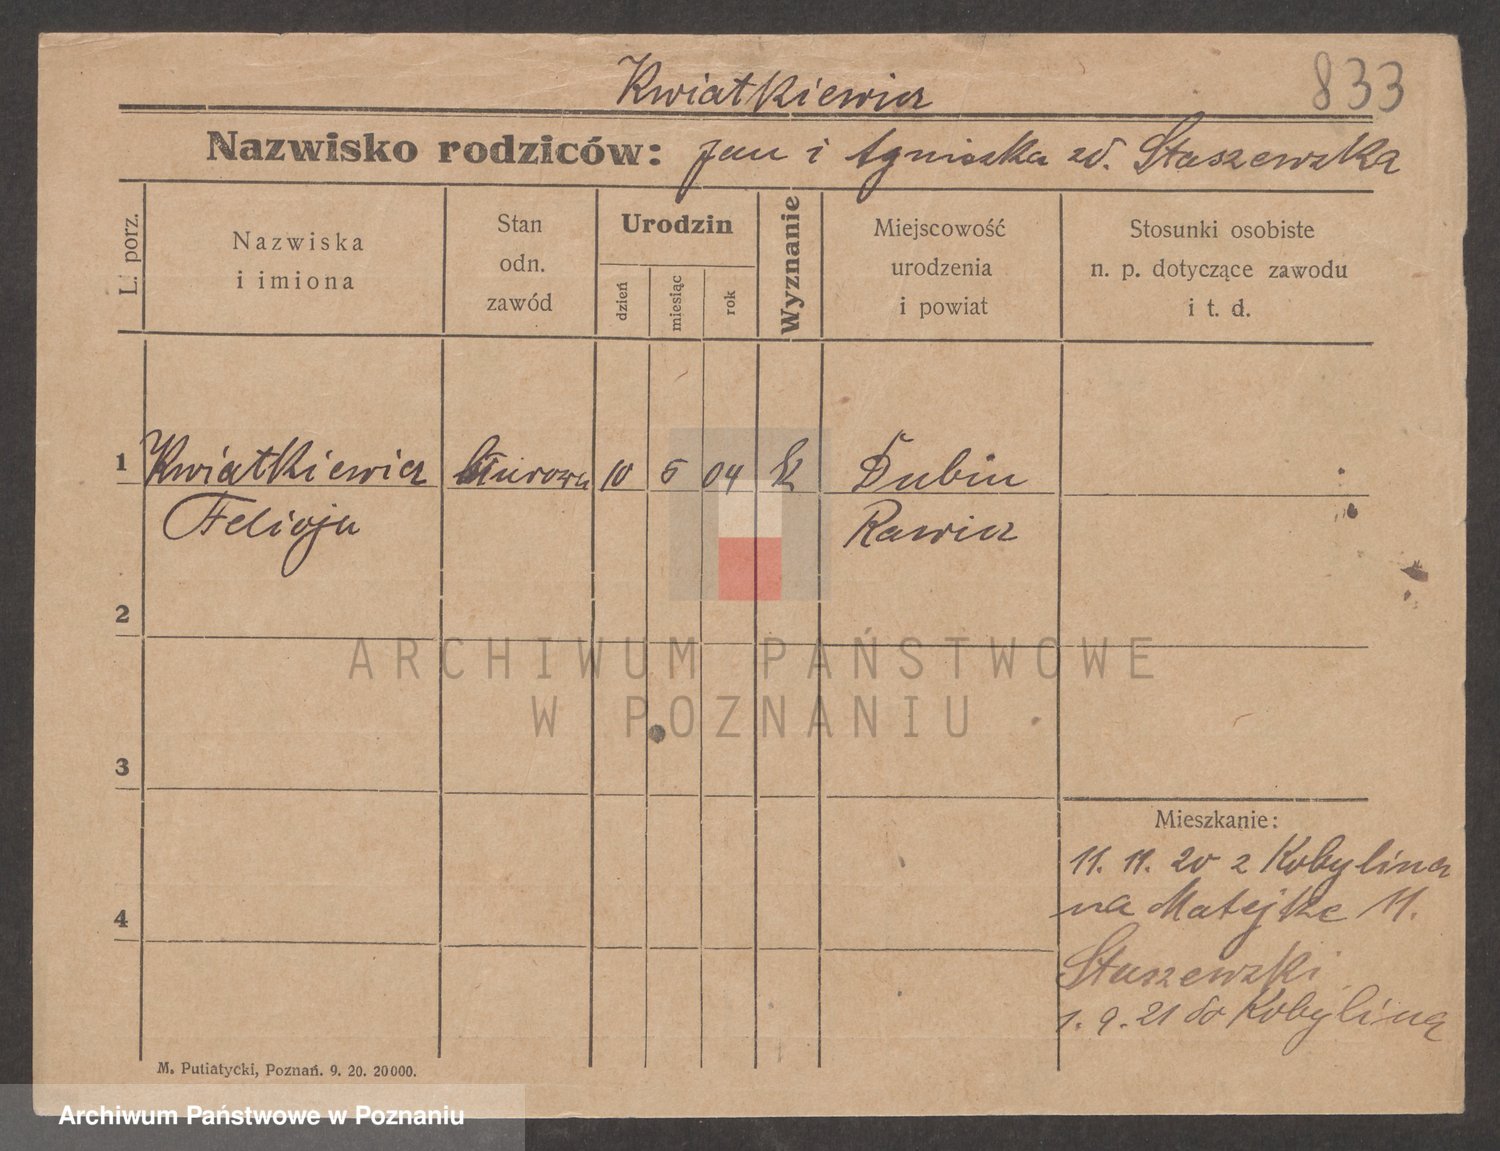 Kwiatkiewicz
833
Nazwisko rodziców: Jan i Agnieszka zd. Staszewska
L. porz.
Nazwiska
i imiona
Stan
odn.
zawód
Urodzin
dzień
miesiąc
rok
Wyznanie
Miejscowość
urodzenia
i powiat
Stosunki osobiste
n. p. dotyczące zawodu
i t. d.
1 Kwiatkiewicz biurowa 10 5 04 k Dubin
Felicja Rawicz
2
3
4
Mieszkanie:
11. 11. 20 z Kobylina
na Matejke 11.
Staszewski
1. 9. 21 do Kobylina
M. Putiatycki, Poznań. 9. 20. 20000.
ARCHIWUM PAŃSTWOWE
W POZNANIU
Archiwum Państwowe w Poznaniu